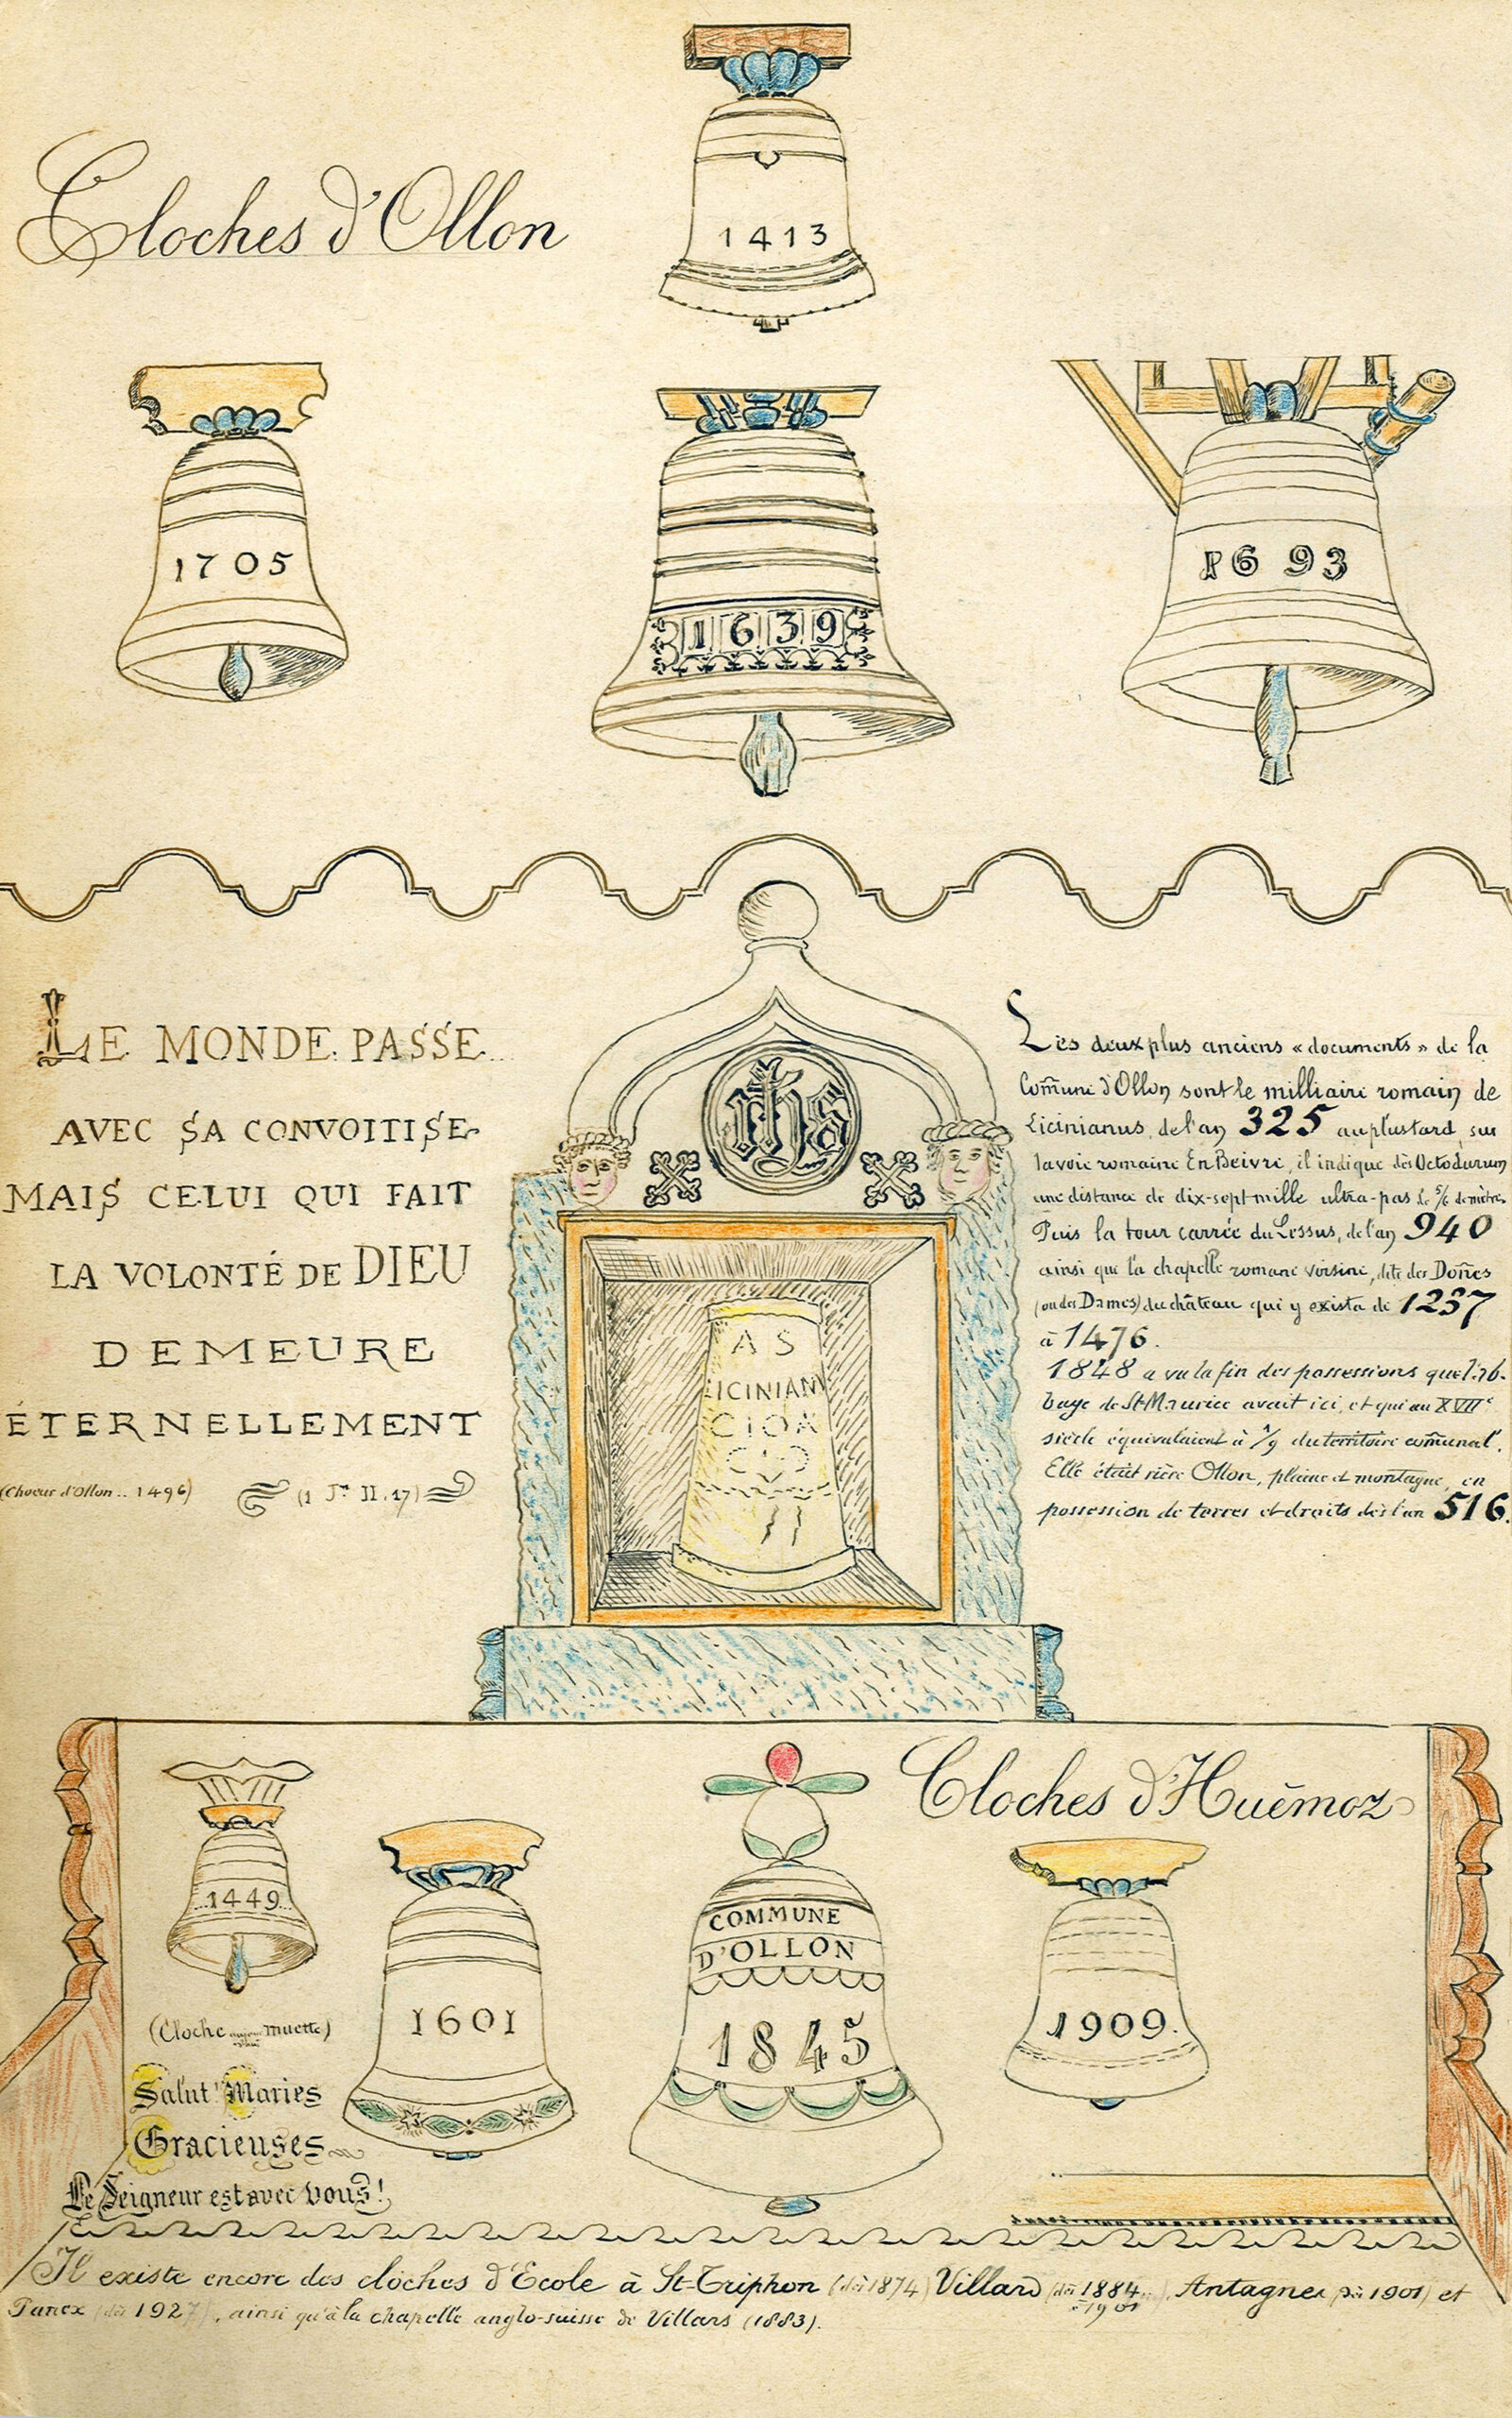 Cloches d'Ollon
1413
1705
1639
1693
LE MONDE PASSE
AVEC SA CONVOITISE
MAIS CELUI QUI FAIT
LA VOLONTÉ DE DIEU
DEMEURE
ÉTERNELLEMENT
(Choeur d'Ollon .. 1496) (1 Jn II.17)
ihs
AS
LICINIAN
Les deux plus anciens «documents» de la
Com̃une d'Ollon sont le milliaire romain de
Licinianus, de l'an 325 au plus tard, sur
la voie romaine En Beivre, il indique dès Octodurum
une distance de dix-sept mille ultra-pas
Puis la tour carrée du Lessus, de l'an 940
ainsi que la chapelle romane voisine, dite des Don̄es
(ou des Dames) du château qui y exista de 1237
à 1476.
1848 a vu la fin des possessions que l'ab-
baye de St-Maurice avait ici, et qui au XVIIe
siècle équivalaient à 1/9 du territoire com̃unal.
Elle était rière Ollon, plaine et montagne, en
possession de terres et droits dès l'an 516.
Cloches d'Huémoz
1449
1601
COMMUNE
D'OLLON
1845
1909.
(Cloche muette)
Salut Maries
Gracieuses
Le Seigneur est avec vous!
Il existe encore des cloches d'Ecole à St-Triphon (dès 1874) Villard (dès 1884 Antagnes (dès 1901) et
Panex (dès 1927), ainsi qu'à la chapelle anglo-suisse de Villars (1883).